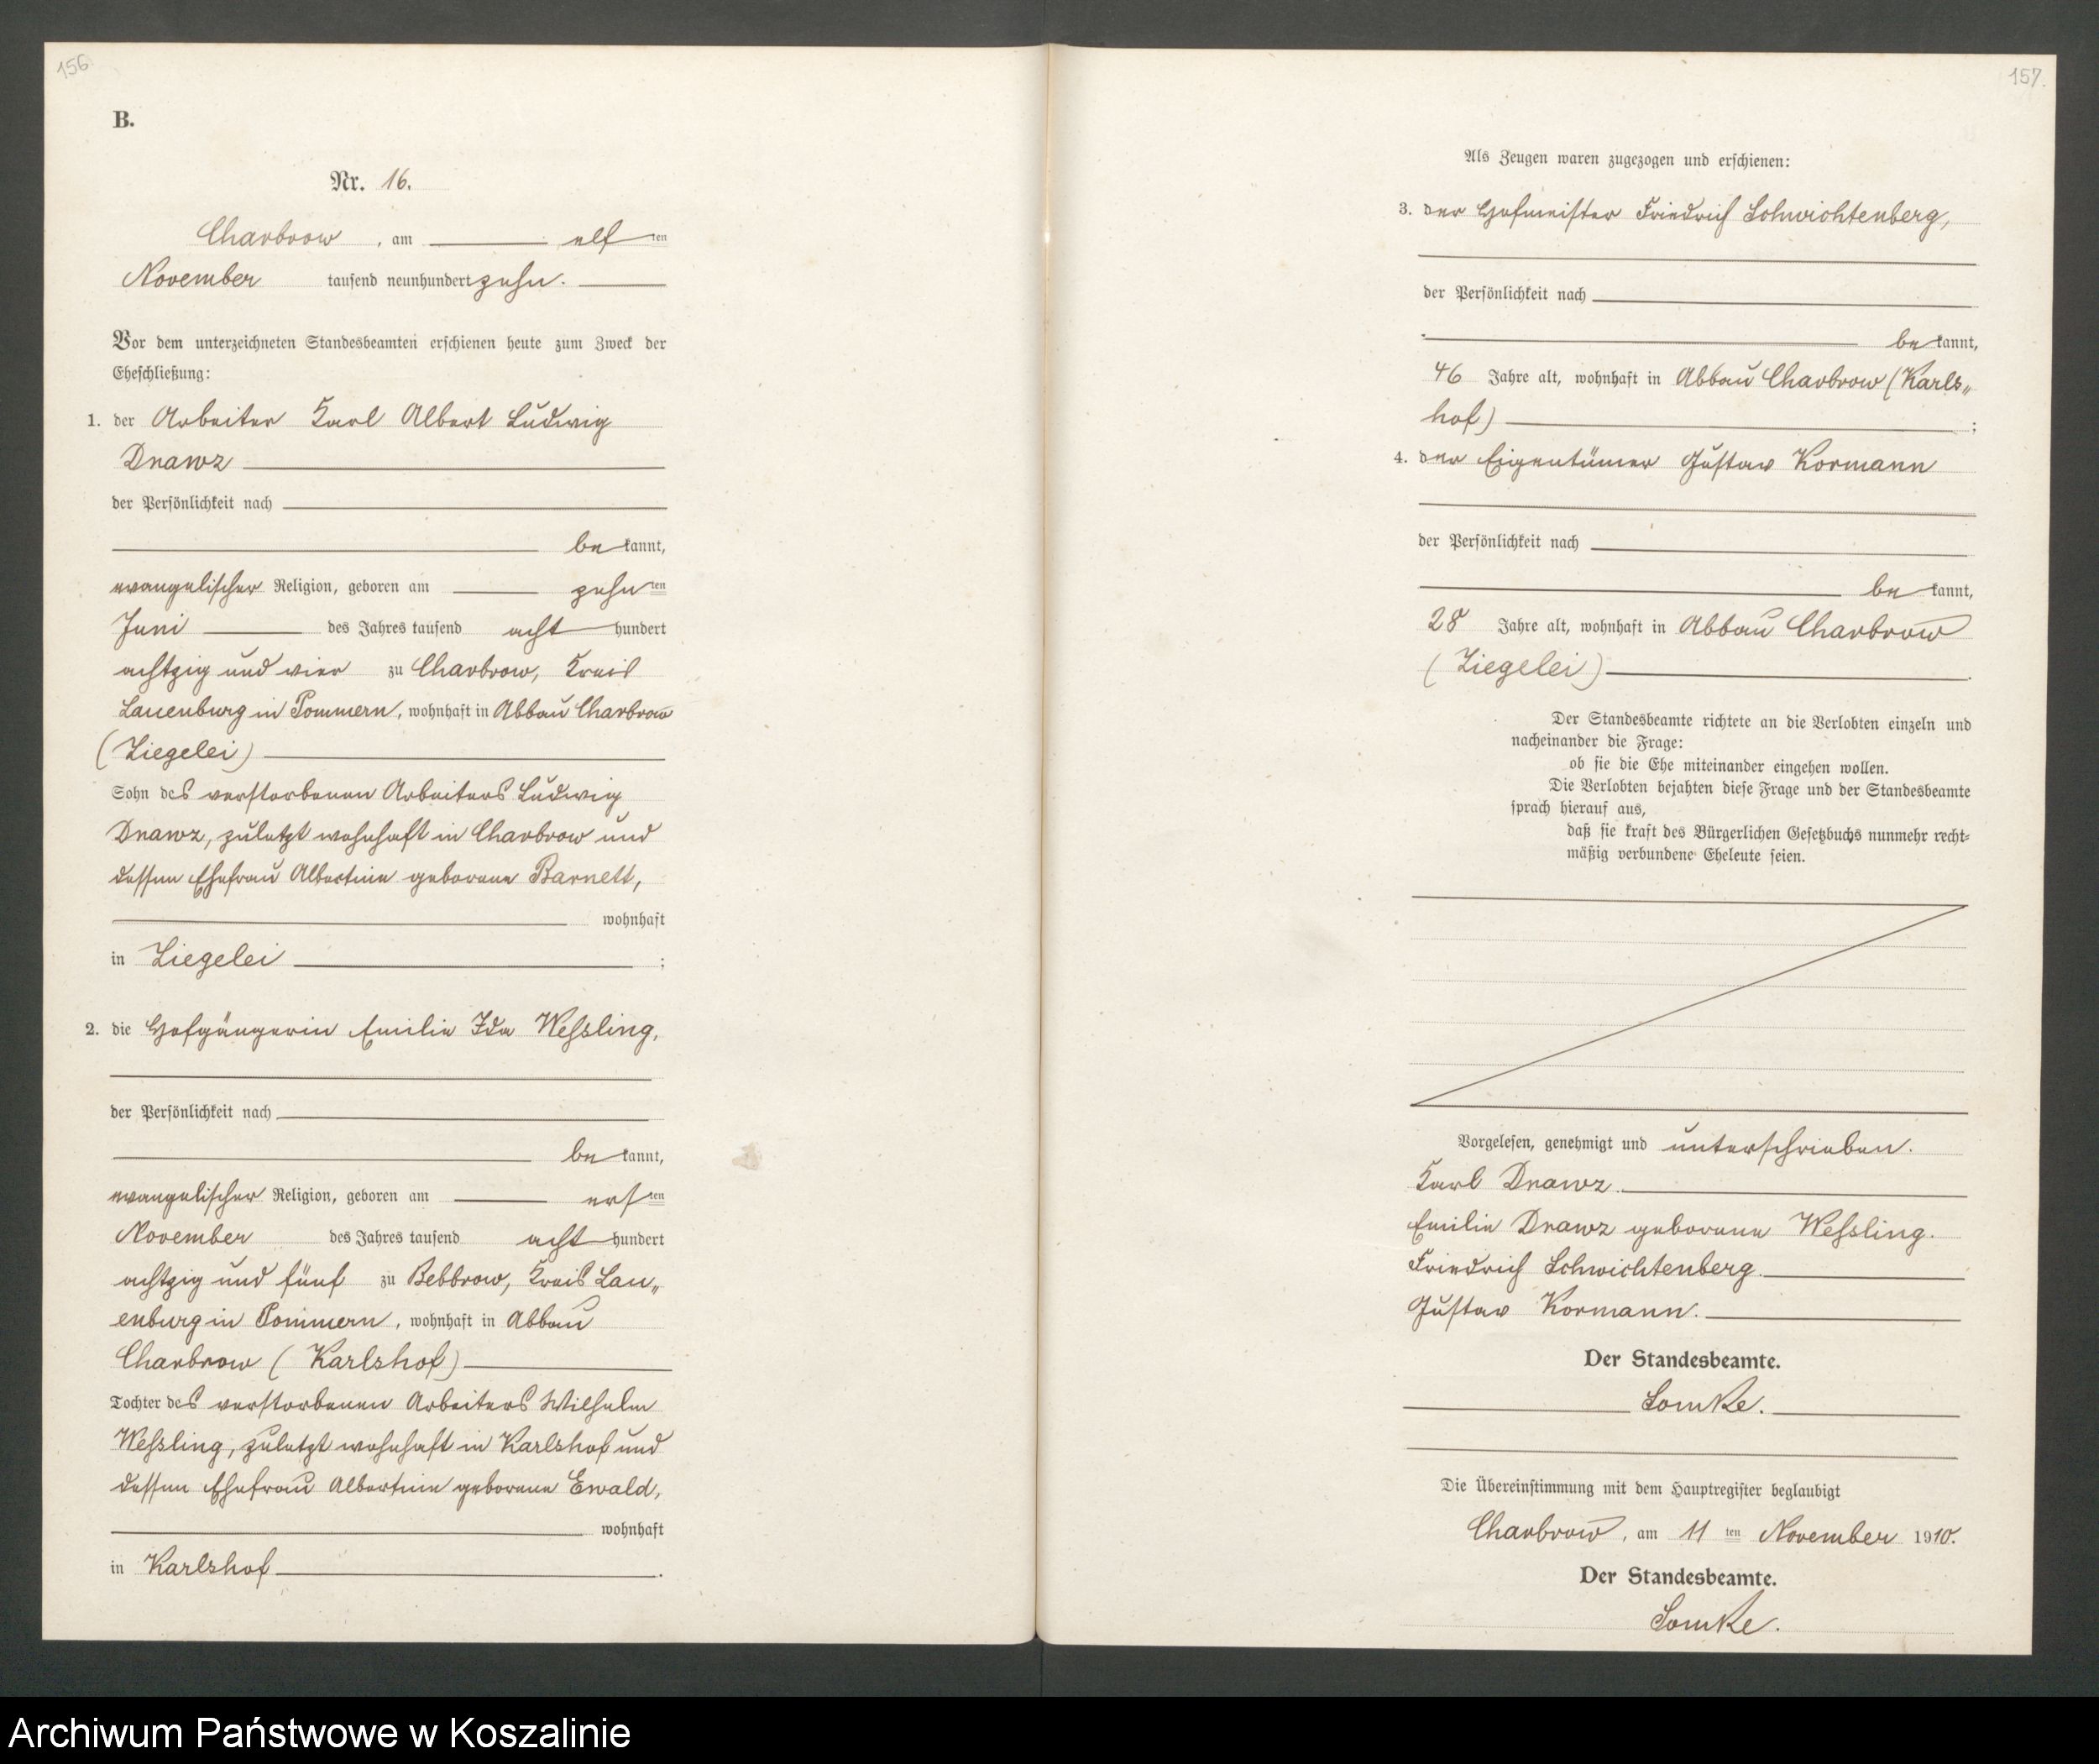 156.
B.
Nr. 16.
Charbrow, am elf ten
November tausend neunhundert zehn.
Vor dem unterzeichneten Standesbeamten erschienen heute zum Zweck der
Eheschließung:
1. der Arbeiter Karl Albert Ludwig
Drawz
der Persönlichkeit nach
be kannt,
evangelischer Religion, geboren am zehn ten
Juni des Jahres tausend acht hundert
achtzig und vier zu Charbrow, Kreis
Lauenburg in Pommern, wohnhaft in Abbau Charbrow
(Ziegelei)
Sohn des verstorbenen Arbeiters Ludwig
Drawz, zuletzt wohnhaft in Charbrow und
dessen Ehefrau Albertine geborene Barnett,
wohnhaft
in Ziegelei ;
2. die Hofgängerin Emilie Ida Weßling,
der Persönlichkeit nach
be kannt,
evangelischer Religion, geboren am ers ten
November des Jahres tausend acht hundert
achtzig und fünf zu Bebbrow, Kreis Lau„
enburg in Pommern, wohnhaft in Abbau
Charbrow (Karlshof)
Tochter des verstorbenen Arbeiters Wilhelm
Weßling, zuletzt wohnhaft in Karlshof und
dessen Ehefrau Albertine geborene Ewald,
wohnhaft
in Karlshof .
157.
Als Zeugen waren zugezogen und erschienen:
3. der Hofmeister Friedrich Schwichtenberg,
der Persönlichkeit nach
be kannt,
46 Jahre alt, wohnhaft in Abbau Charbrow (Karls„
hof) ;
4. der Eigentümer Gustav Kormann
der Persönlichkeit nach
be kannt,
28 Jahre alt, wohnhaft in Abbau Charbrow
(Ziegelei) .
Der Standesbeamte richtete an die Verlobten einzeln und
nacheinander die Frage:
ob sie die Ehe miteinander eingehen wollen.
Die Verlobten bejahten diese Frage und der Standesbeamte
sprach hierauf aus,
daß sie kraft des Bürgerlichen Gesetzbuchs nunmehr recht-
mäßig verbundene Eheleute seien.
Vorgelesen, genehmigt und unterschrieben.
Karl Drawz.
Emilie Drawz geborene Weßling.
Friedrich Schwichtenberg.
Gustav Kormann.
Der Standesbeamte.
Lomke.
Die Übereinstimmung mit dem Hauptregister beglaubigt
Charbrow, am 11 ten November 1910.
Der Standesbeamte.
Lomke.
Archiwum Państwowe w Koszalinie